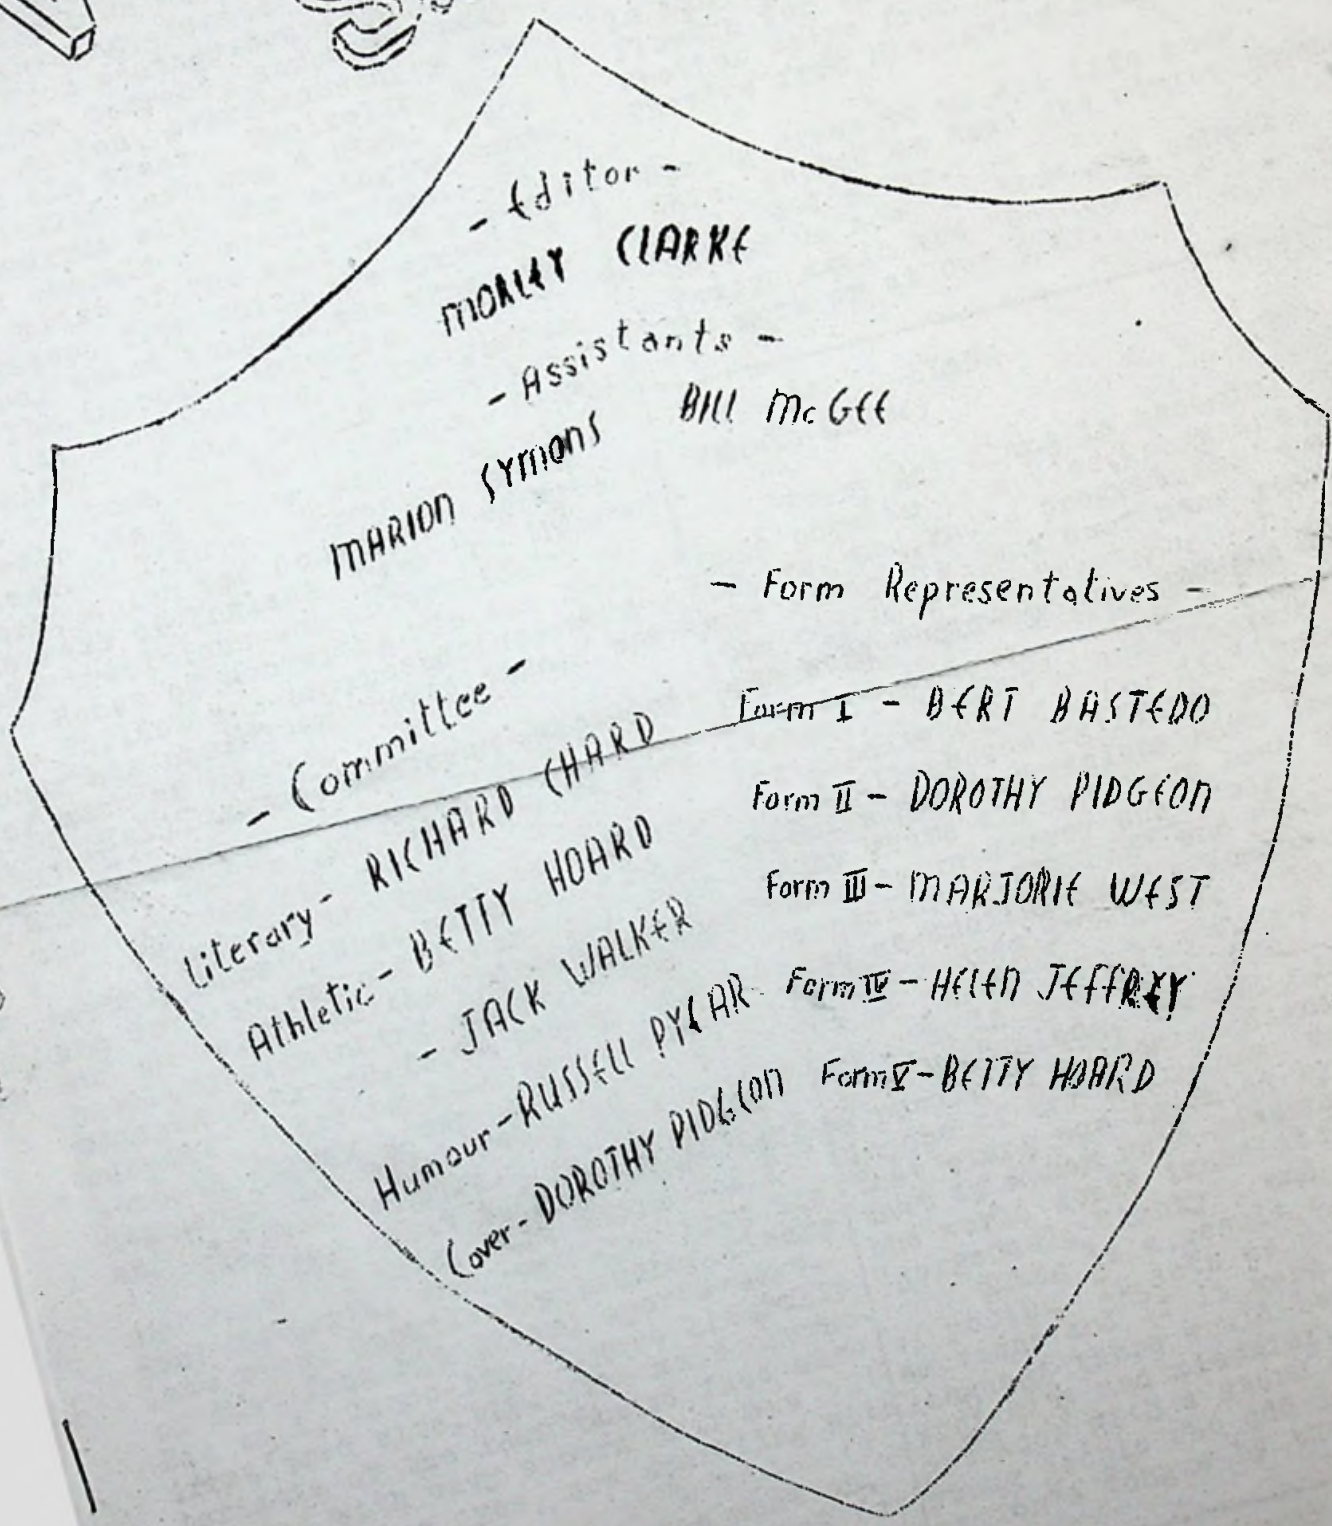 - Editor -
MORLEY CLARKE
- Assistants -
MARION SYMONS BILL McGEE
- Committee -
Literary - RICHARD CHARD
Athletic - BETTY HOARD
- JACK WALKER
Humour - RUSSELL PYEAR
Cover - DOROTHY PIDGEON
- Form Representatives -
Form I - BERT BASTEDO
Form II - DOROTHY PIDGEON
Form III - MARJORIE WEST
Form IV - HELEN JEFFREY
Form V - BETTY HOARD